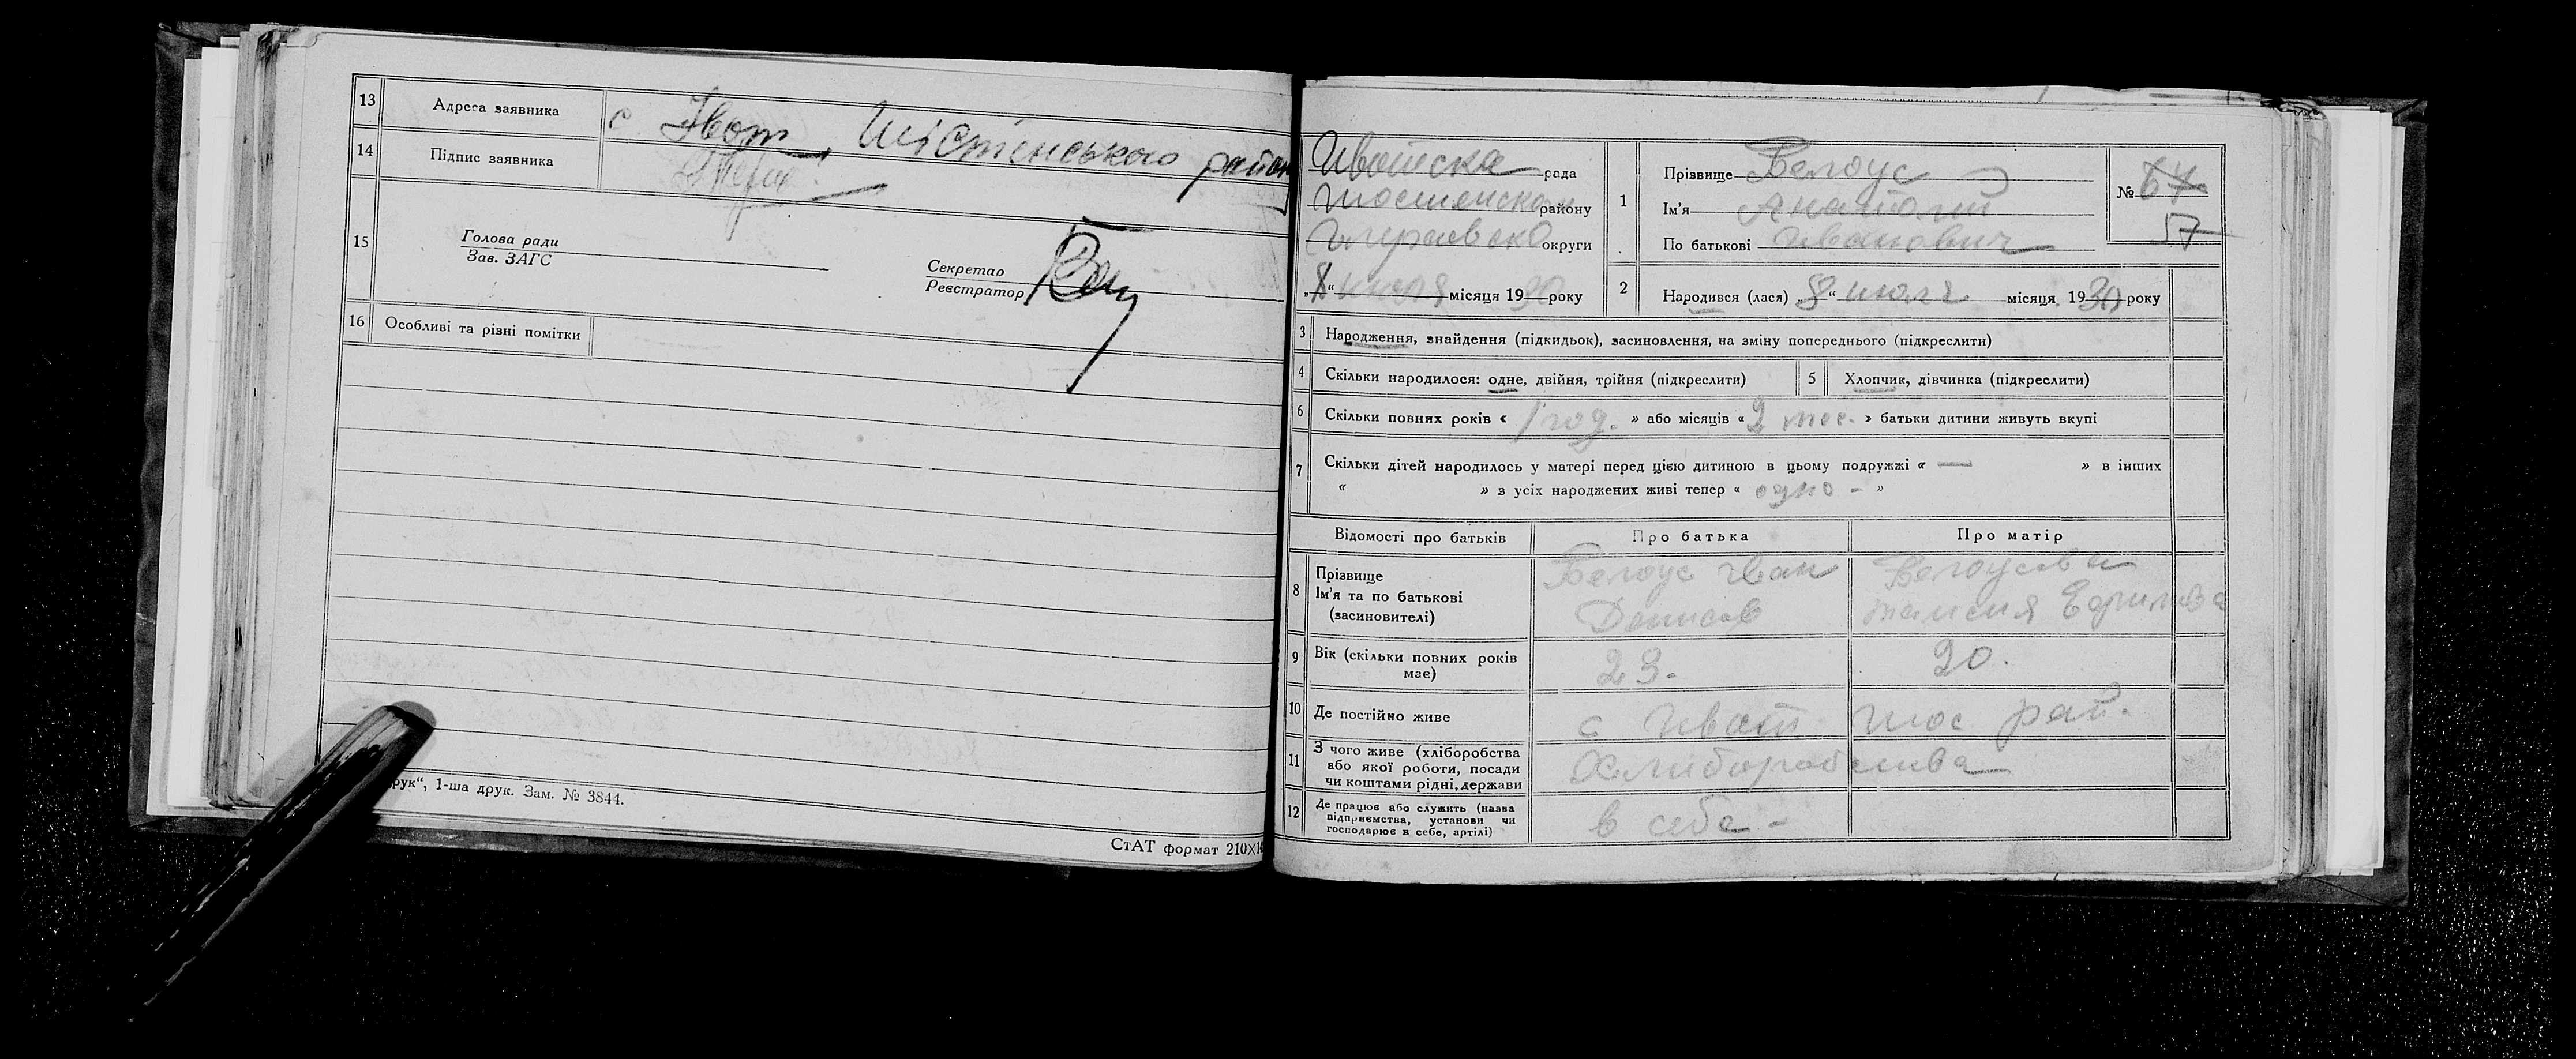 13 Адреса заявника с Ивот, Шістенського район
14 Підпис заявника
15 Голова ради
Зав. ЗАГС
Секретар
Реєстратор
16 Особливі та різні помітки
рук“, 1-ша друк. Зам. № 3844.
СтАТ формат 210X1
Ивотска рада
району
округи
„8“ июля місяця 1930 року
1 Прізвище Белоус
Ім'я Анатолий
По батькові Иванович
№ 67
57
2 Народився (лася) „8“ июля місяця 1930 року
3 Народження, знайдення (підкидьок), засиновлення, на зміну попереднього (підкреслити)
4 Скільки народилося: одне, двійня, трійня (підкреслити) 5 Хлопчик, дівчинка (підкреслити)
6 Скільки повних років « 1 год. » або місяців « 2 мес. » батьки дитини живуть вкупі
7 Скільки дітей народилось у матері перед цією дитиною в цьому подружжі « — » в інших
« » з усіх народжених живі тепер « одно - »
Відомості про батьків Про батька Про матір
8 Прізвище
Ім'я та по батькові
(засиновителі)
Белоус Иван
Денисов
Белоусова
9 Вік (скільки повних років
має)
23. 20.
10 Де постійно живе с Ивот Шос рай.
11 З чого живе (хліборобства
або якої роботи, посади
чи коштами рідні, держави
Хлиборобства
12 Де працює або служить (назва
підприємства, установи чи
господарює в себе, артілі)
в себе -